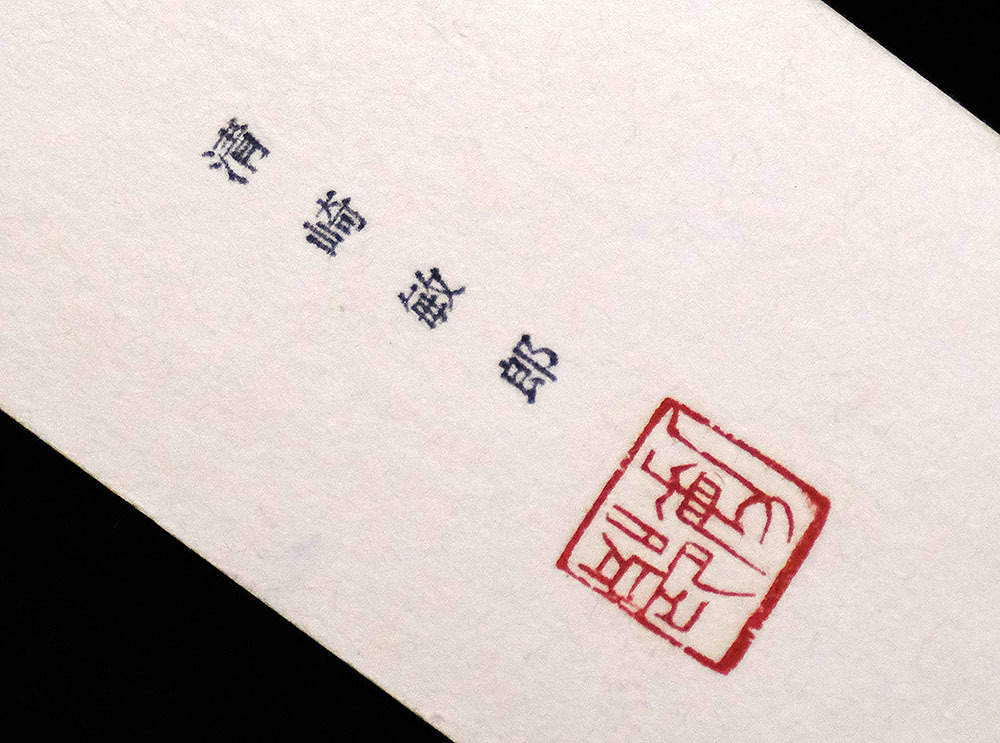 清崎敏郎